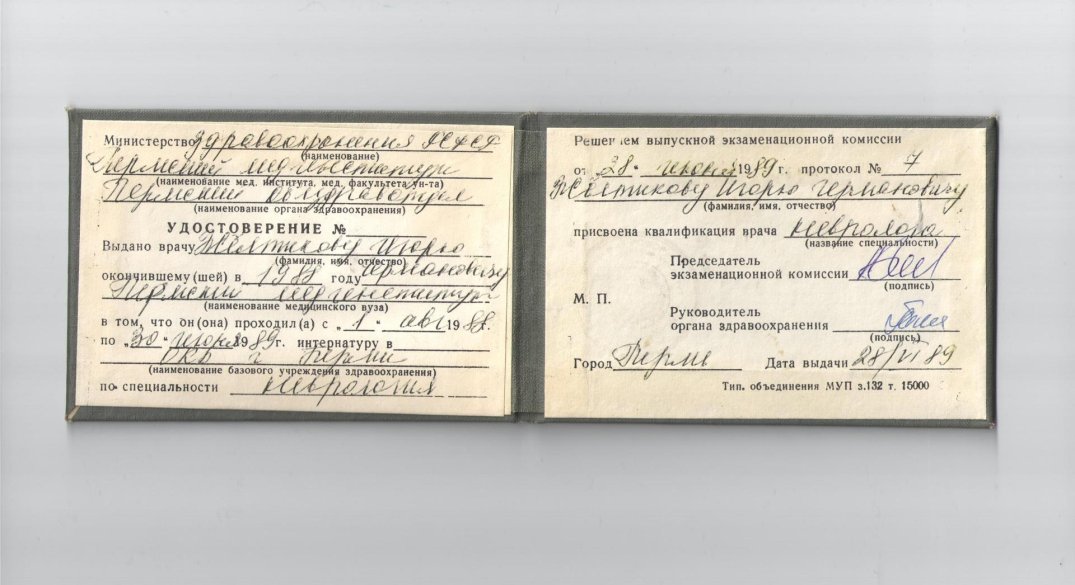 Министерство Здравоохранения РСФСР
(наименование)
Пермский мединститут
(наименование мед. института, мед. факультета ун-та)
Пермский облздравотдел
(наименование органа здравоохранения)
УДОСТОВЕРЕНИЕ №
Выдано врачу Желтикову Игорю
(фамилия, имя, отчество)
окончившему (шей) в 1988 году Германовичу
Пермский мединститут
(наименование медицинского вуза)
в том, что он (она) проходил(а) с „1“ авг 1988.
по „30“ июня 1989г. интернатуру в
ОКБ г. Перми
(наименование базового учреждения здравоохранения)
по специальности неврология
Решением выпускной экзаменационной комиссии
от 28 июня 1989г. протокол № 7
Желтикову Игорю Германовичу
(фамилия, имя, отчество)
присвоена квалификация врача невролога
(название специальности)
Председатель
экзаменационной комиссии
(подпись)
М. П.
Руководитель
органа здравоохранения
(подпись)
Город Пермь Дата выдачи 28/VI 89
Тип. объединения МУП з.132 т. 15000